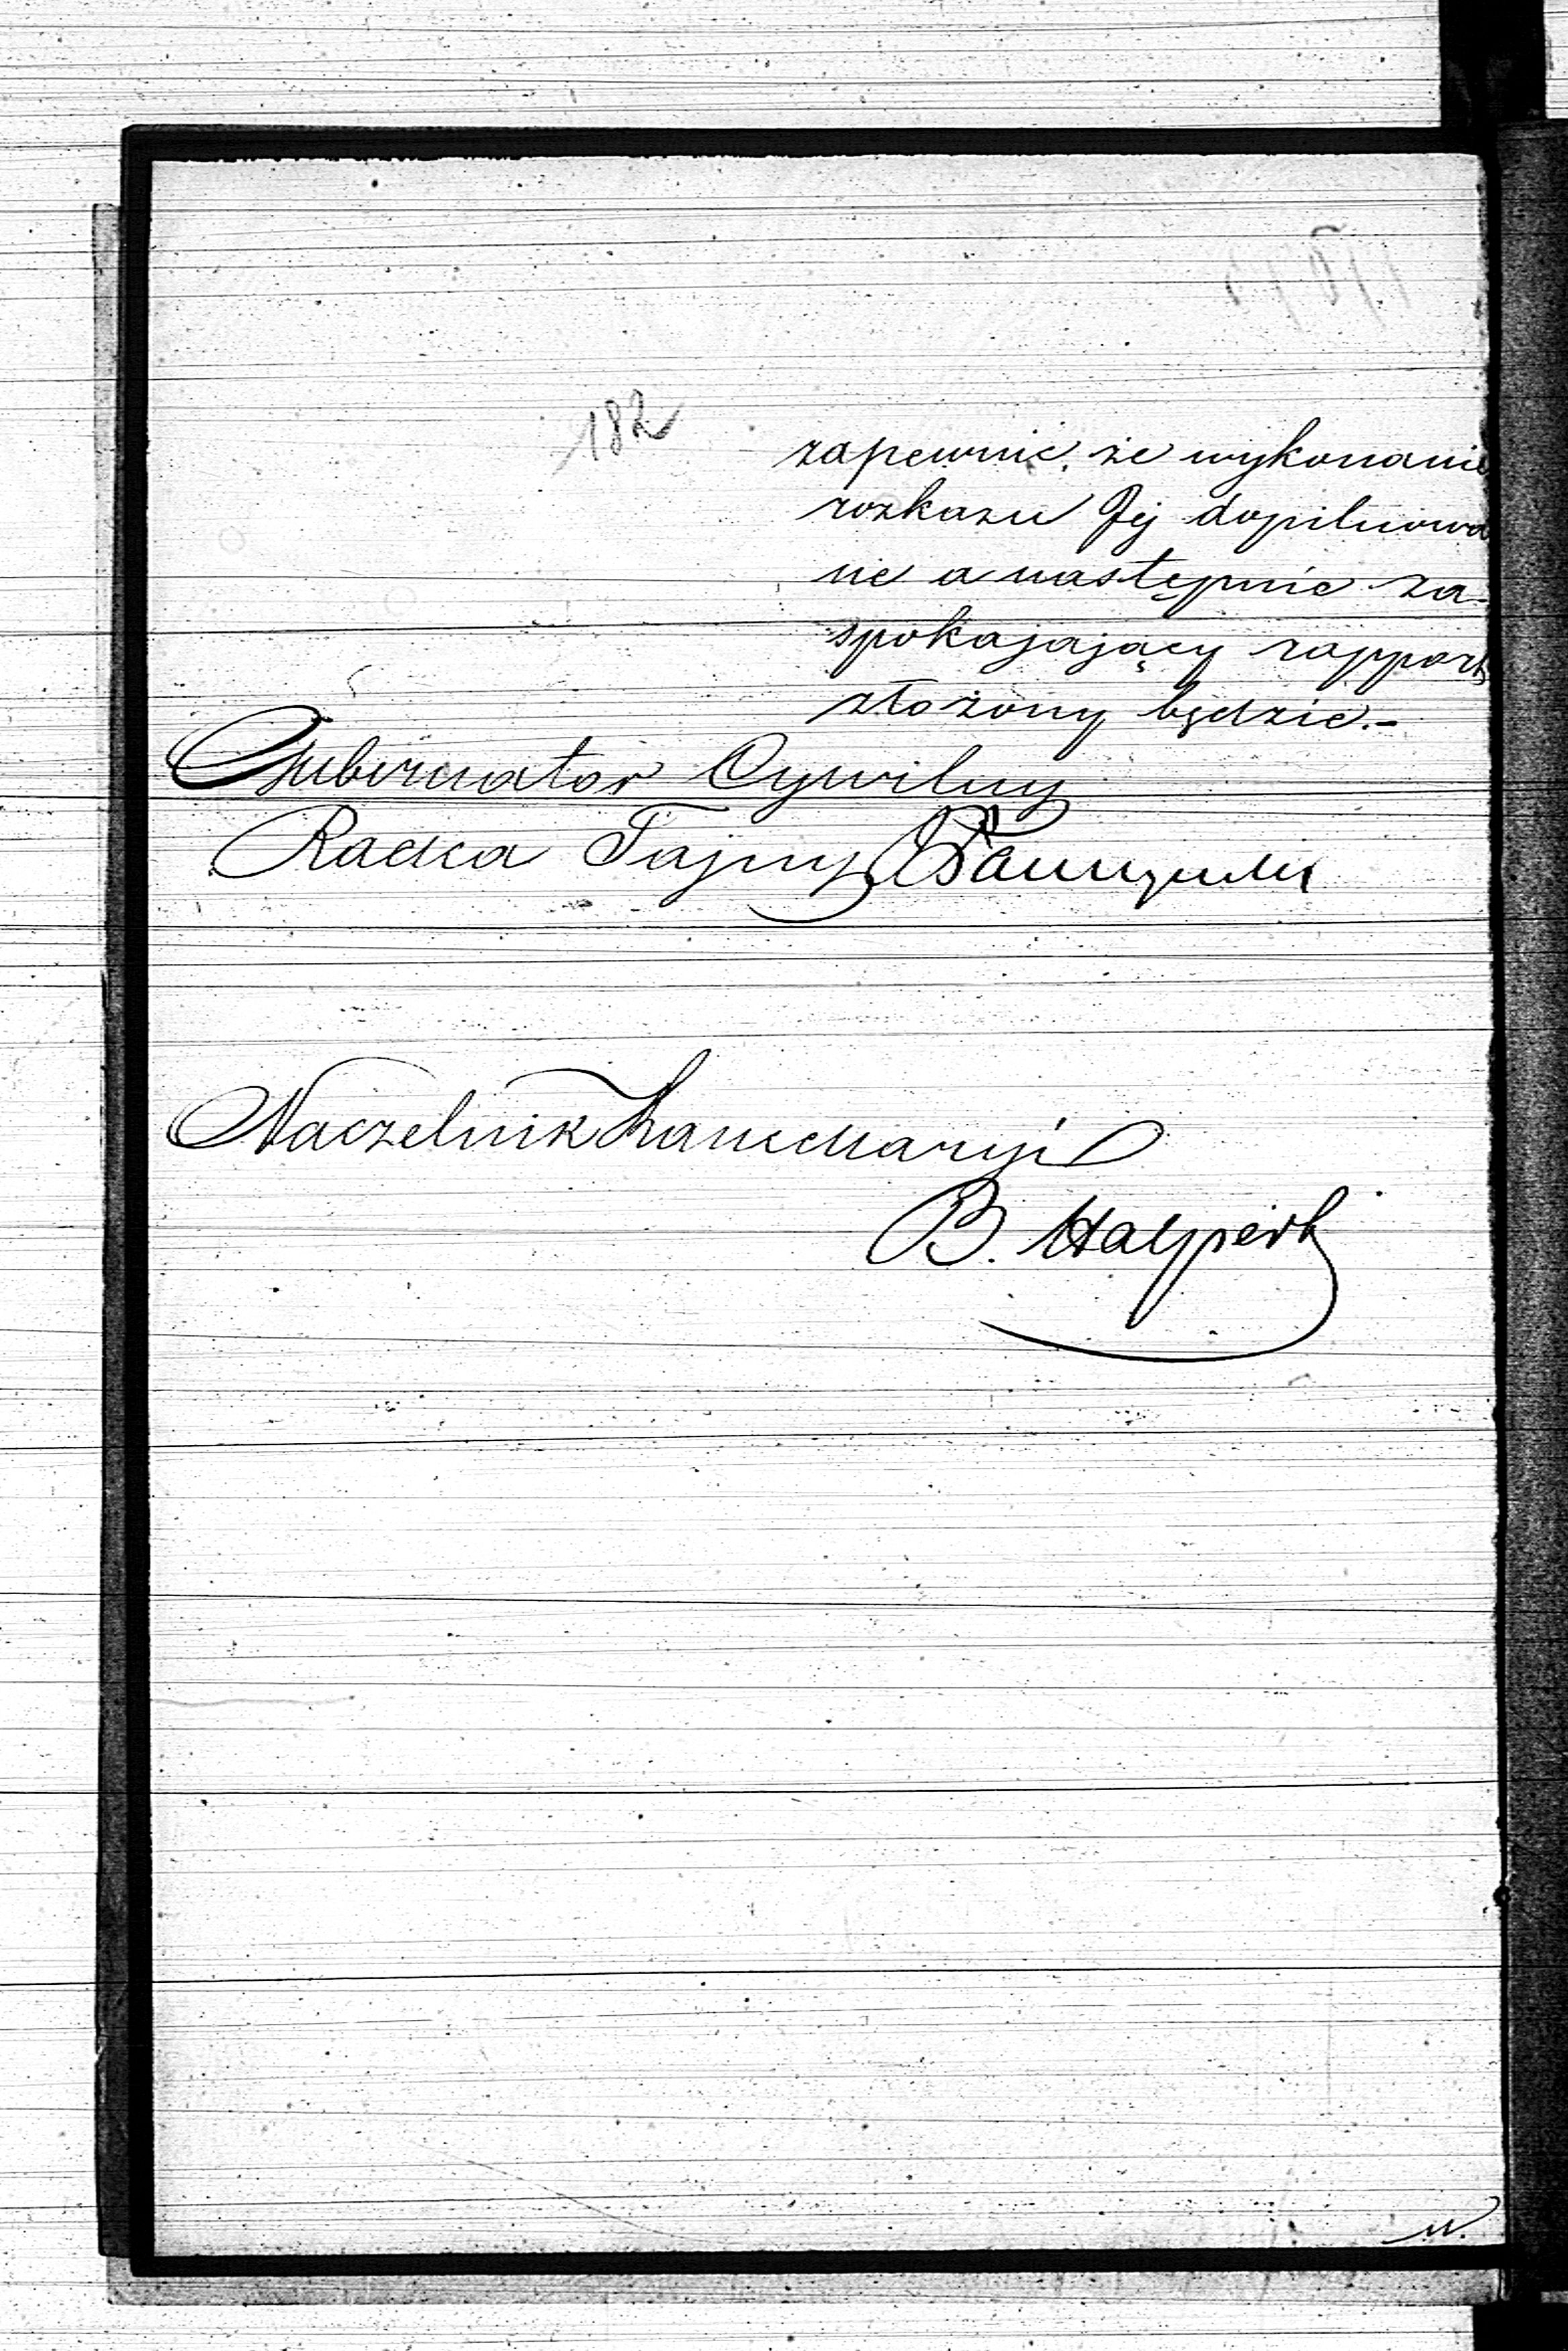 182
zapewnić, że wykonanie
rozkazu Jej dopilnowa
ne a następnie za-
spokajający rapport
złożony będzie.-
Gubernator Cywilny
Radca Tajny
Naczelnik Kancellaryi
B. Halpert